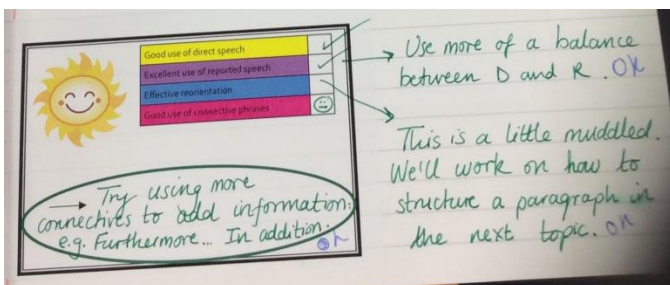 Good use of direct speech
Excellent use of reported speech
Effective reorientation
Good use of connective phrases
→ Try using more
connectives to add information:
e.g. Furthermore... In addition.
OK
→ Use more of a balance
between D and R. OK
This is a little muddled.
We'll work on how to
structure a paragraph in
the next topic. OK